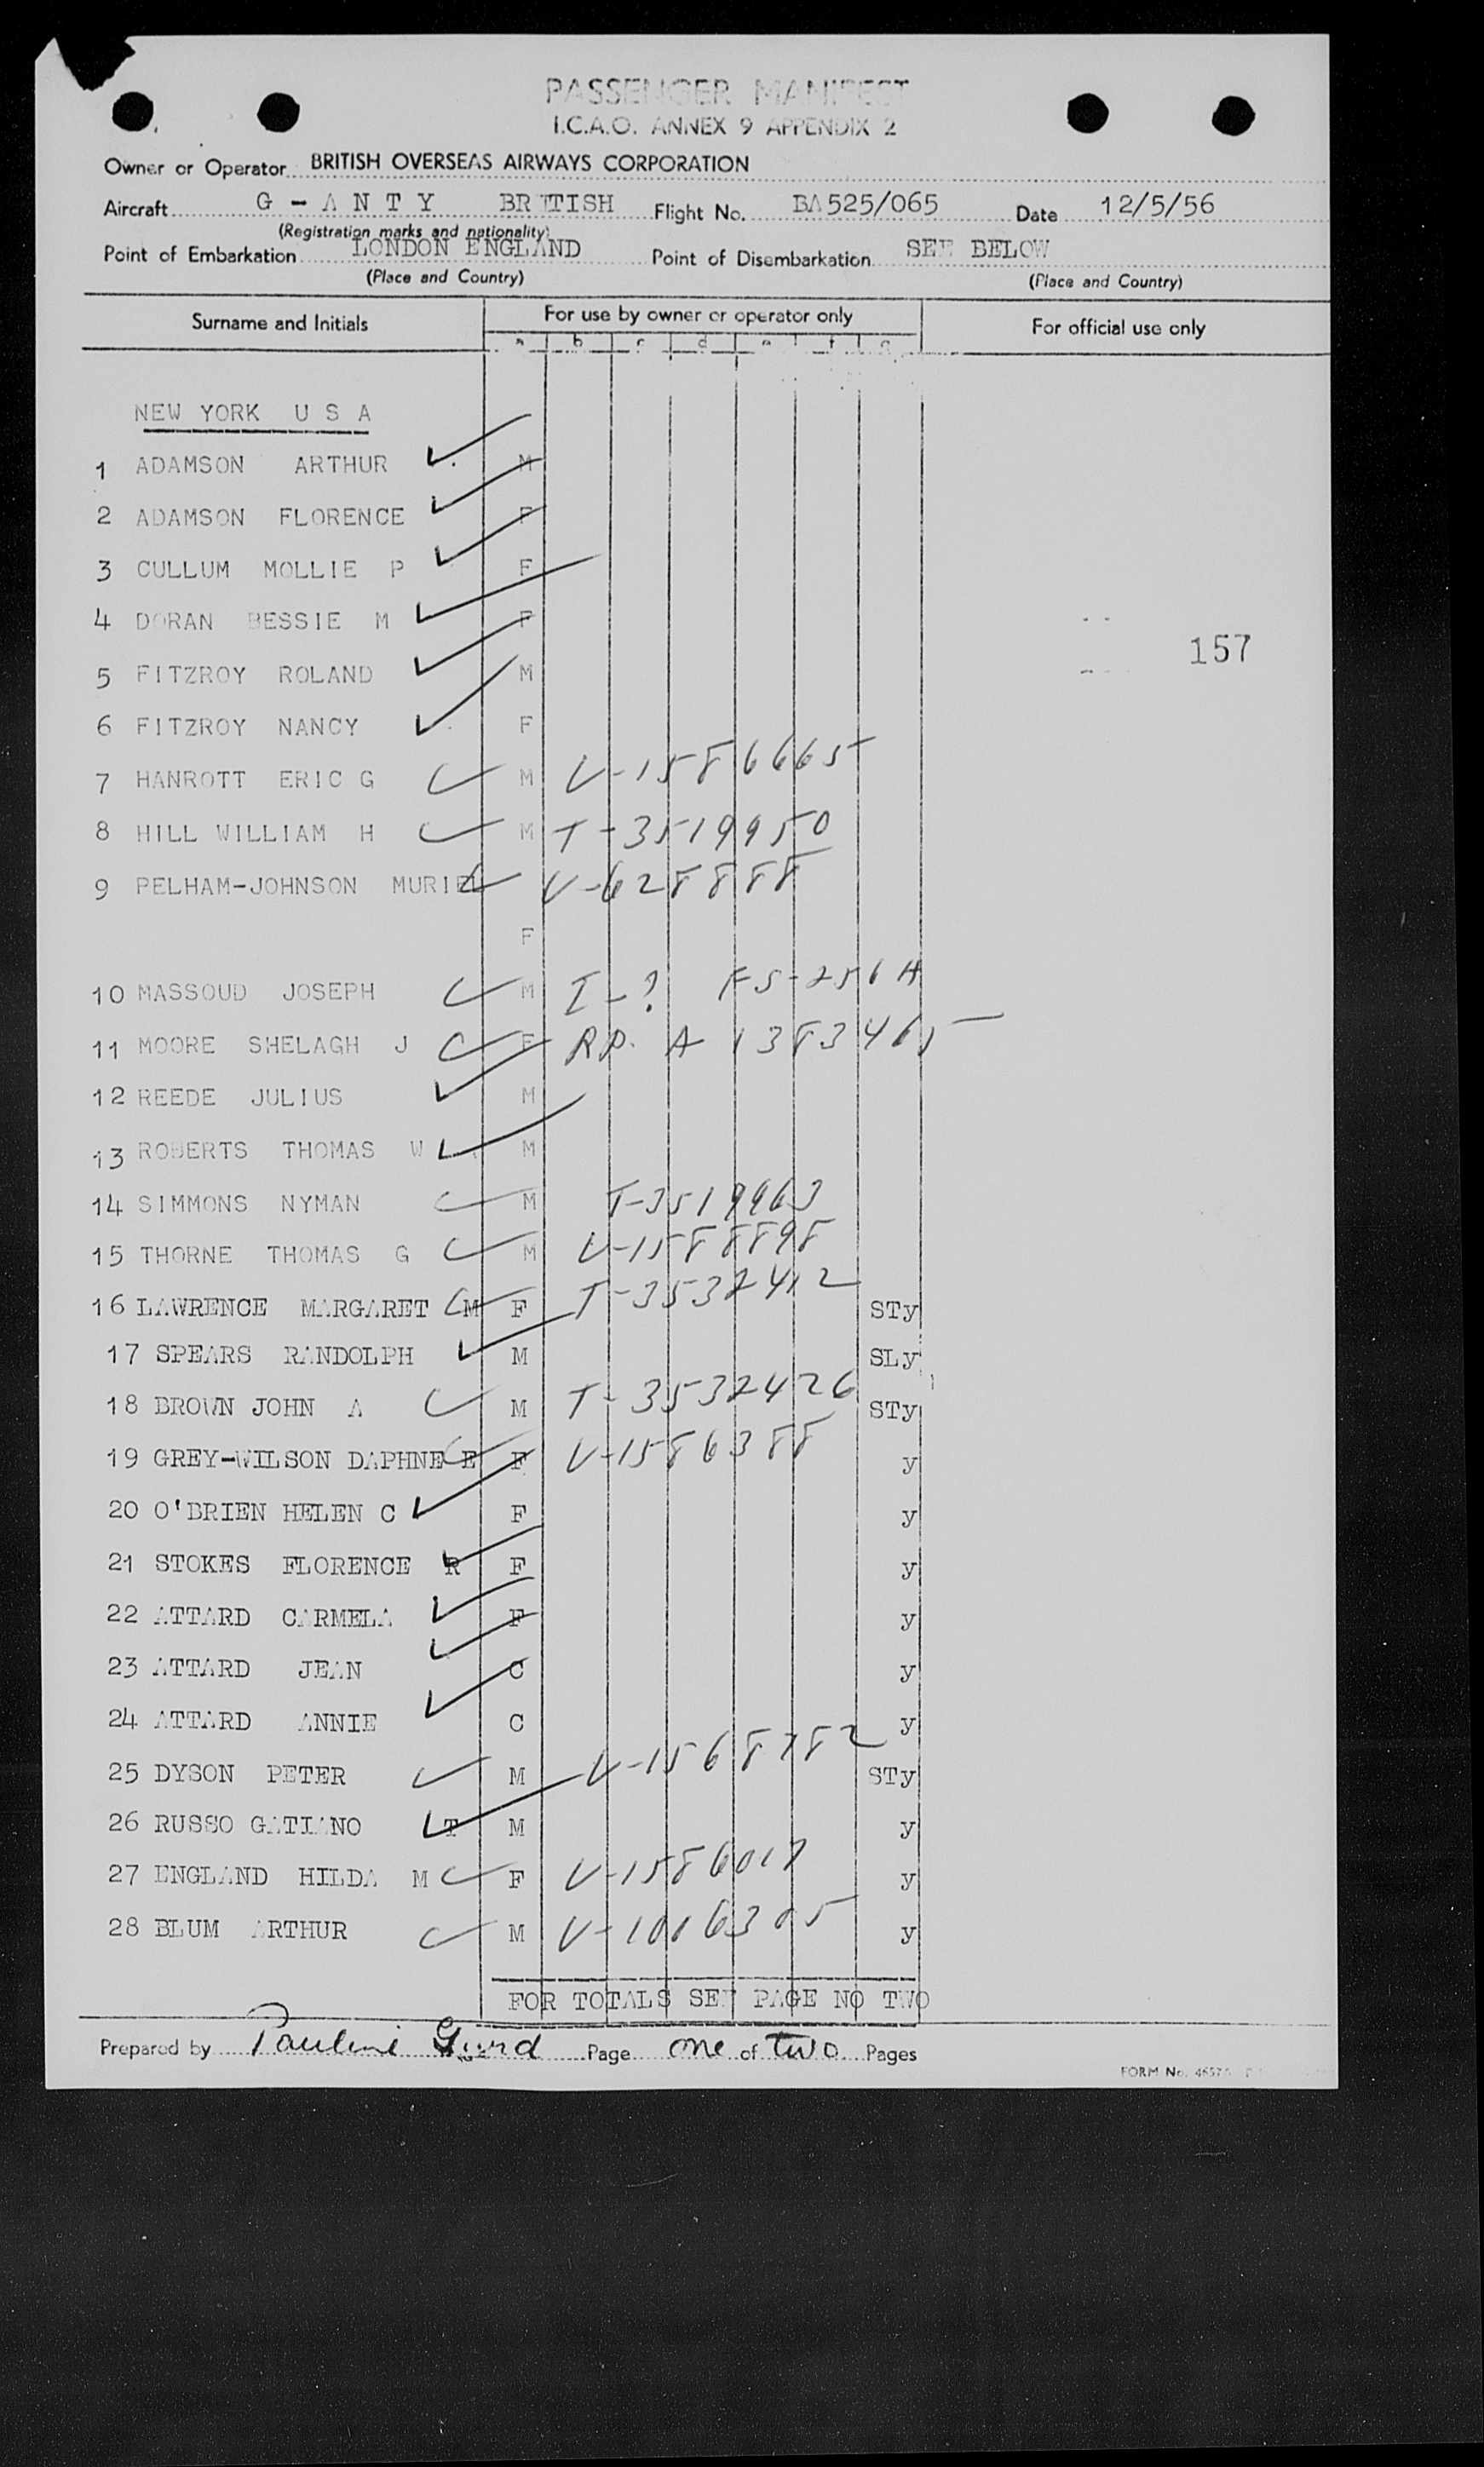 PASSENGER MANIFEST
I.C.A.O. ANNEX 9 APPENDIX 2
Owner or Operator BRITISH OVERSEAS AIRWAYS CORPORATION
Aircraft G - A N T Y BRITISH Flight No. BA525/065 Date 12/5/56
(Registration marks and nationality)
Point of Embarkation LONDON ENGLAND Point of Disembarkation SEE BELOW
(Place and Country) (Place and Country)
Surname and Initials For use by owner or operator only For official use only
a b c d e f g
NEW YORK U S A
1 ADAMSON ARTHUR M
2 ADAMSON FLORENCE F
3 CULLUM MOLLIE P F
4 DORAN BESSIE M F
157
5 FITZROY ROLAND M
6 FITZROY NANCY F
7 HANROTT ERIC G M V-1586665
8 HILL WILLIAM H M T-3519950
9 PELHAM-JOHNSON MURIEL V-628888
F
10 MASSOUD JOSEPH M I-? FS-256 A
11 MOORE SHELAGH J F R.P. A 1383465
12 REEDE JULIUS M
13 ROBERTS THOMAS W M
14 SIMMONS NYMAN M T-3519963
15 THORNE THOMAS G M V-1588898
16 LAWRENCE MARGARET M F T-3532412 STy
17 SPEARS RANDOLPH M SLy
18 BROWN JOHN A M T-3532426 STy
19 GREY-WILSON DAPHNE E F V-1586388 y
20 O'BRIEN HELEN C F y
21 STOKES FLORENCE R F y
22 ATTARD CARMELA F y
23 ATTARD JEAN C y
24 ATTARD ANNIE C y
25 DYSON PETER M V-1568782 STy
26 RUSSO GATIANO T M y
27 ENGLAND HILDA M F V-1586017 y
28 BLUM ARTHUR M V-1016305 y
FOR TOTALS SEE PAGE NO TWO
Prepared by Pauline Page one of two Pages
FORM No.